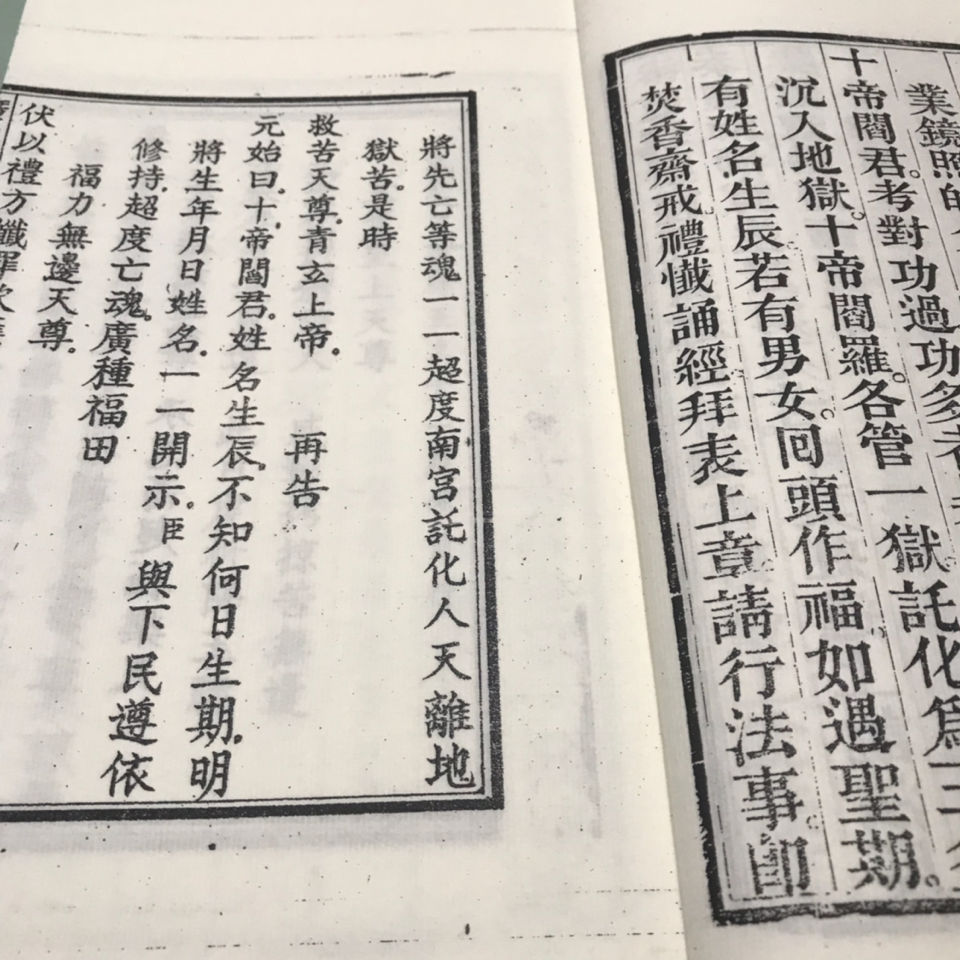 業鏡照
十帝閻君。考對功過功多者
沉入地獄。十帝閻羅。各管一獄託化爲三
有姓名生辰若有男女。回頭作福。如遇聖期。
焚香齋戒。禮懺誦經拜表上章請行法事。即
將先亡等魂一一超度南宮託化人天離地
獄苦。是時
救苦天尊。青玄上帝。 再告
元始曰。十帝閻君。姓名生辰。不知何日生期。明
將生年月日姓名。一一開示。臣與下民遵依
修持。超度亡魂。廣種福田
福力無邊天尊。
伏以禮方懺罪